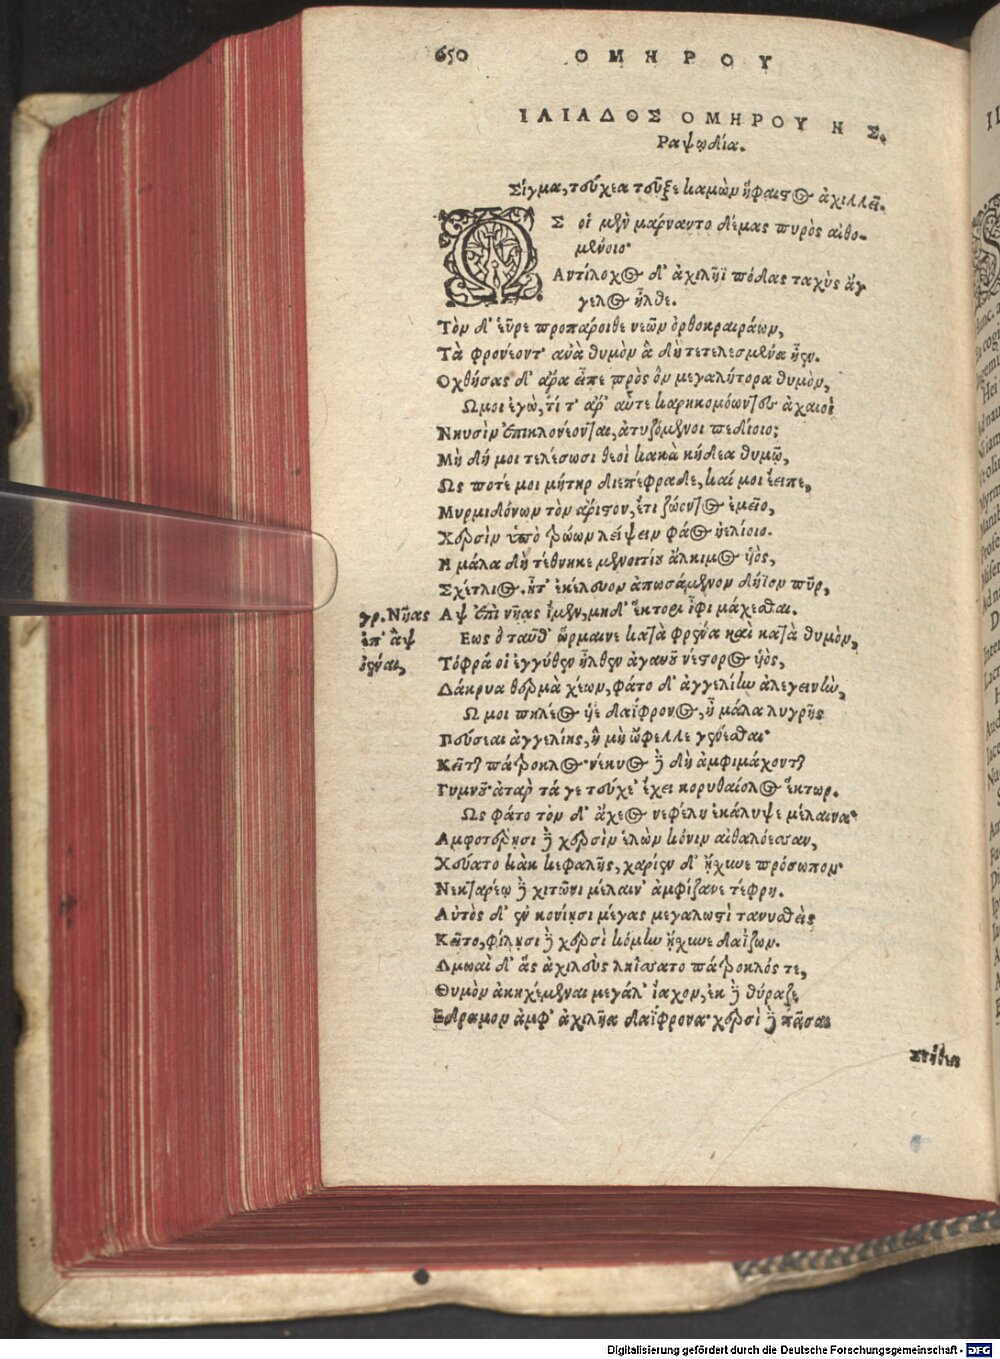 650 ΟΜΗΡΟΥ
ΙΛΙΑΔΟΣ ΟΜΗΡΟΥ Η Σ.
Ραψῳδία.
Σίγμα, τεύχεα τεῦξε καμὼν ἥφαιστος ἀχιλλεῖ.
ΩΣ οἱ μὲν μάρναντο δέμας πυρὸς αἰθο-
μένοιο·
Αντίλοχος δ' ἀχιλῆϊ πόδας ταχὺς ἄγ
γελος ἦλθε.
Τὸν δ' εὗρε προπάροιθε νεῶν ὀρθοκραιράων,
Τὰ φρονέοντ' ἀνὰ θυμὸν ἃ δὴ τετελεσμένα ἦεν.
Οχθήσας δ' ἄρα εἶπε πρὸς ὃν μεγαλήτορα θυμὸν,
Ωμοι ἐγὼ, τί τ' ἄρ' αὖτε καρηκομόωντες ἀχαιοὶ
Νηυσὶν ἐπικλονέονται, ἀτυζόμενοι πεδίοιο;
Μὴ δή μοι τελέσωσι θεοὶ κακὰ κήδεα θυμῷ,
Ως ποτέ μοι μήτηρ διεπέφραδε, καί μοι ἔειπε,
Μυρμιδόνων τὸν ἄριστον, ἔτι ζώοντος ἐμεῖο,
Χερσὶν ὑπὸ τρώων λείψειν φάος ἠελίοιο.
Η μάλα δὴ τέθνηκε μενοιτίου ἄλκιμος υἱὸς,
Σχέτλιος. ἦτ' ἐκέλευον ἀπωσάμενον δήϊον πῦρ,
γρ. Νῆας Αψ ἐπὶ νῆας ἴμεν, μηδ' ἕκτορι ἶφι μάχεσθαι.
ἐπ' ἂψ Εως ὃ ταῦθ' ὥρμαινε κατὰ φρένα καὶ κατὰ θυμὸν,
ἰέναι, Τόφρά οἱ ἐγγύθεν ἦλθεν ἀγαυοῦ νέστορος υἱὸς,
Δάκρυα θερμὰ χέων, φάτο δ' ἀγγελίην ἀλεγεινὴν,
Ω μοι πηλέος υἱὲ δαΐφρονος, ἦ μάλα λυγρῆς
Πεύσεαι ἀγγελίης, ἣ μὴ ὤφελλε γενέσθαι·
Κεῖται πάτροκλος· νέκυος δὲ δὴ ἀμφιμάχονται
Γυμνοῦ· ἀτὰρ τά γε τεύχε' ἔχει κορυθαίολος ἕκτωρ.
Ως φάτο τὸν δ' ἄχεος νεφέλη ἐκάλυψε μέλαινα·
Αμφοτέρῃσι δὲ χερσὶν ἑλὼν κόνιν αἰθαλόεσσαν,
Χεύατο κὰκ κεφαλῆς, χαρίεν δ' ᾔσχυνε πρόσωπον·
Νεκταρέῳ δὲ χιτῶνι μέλαιν' ἀμφίζανε τέφρη.
Αὐτὸς δ' ἐν κονίῃσι μέγας μεγαλωστὶ τανυσθεὶς
Κεῖτο, φίλῃσι δὲ χερσὶ κόμην ᾔσχυνε δαΐζων.
Δμωαὶ δ' ἃς ἀχιλεὺς ληΐσσατο πάτροκλός τε,
Θυμὸν ἀκηχέμεναι μεγάλ' ἴαχον, ἐκ δὲ θύραζε
Εδραμον ἀμφ' ἀχιλῆα δαΐφρονα· χερσὶ δὲ πᾶσαι
στήθεα
Digitalisierung gefördert durch die Deutsche Forschungsgemeinschaft - DFG